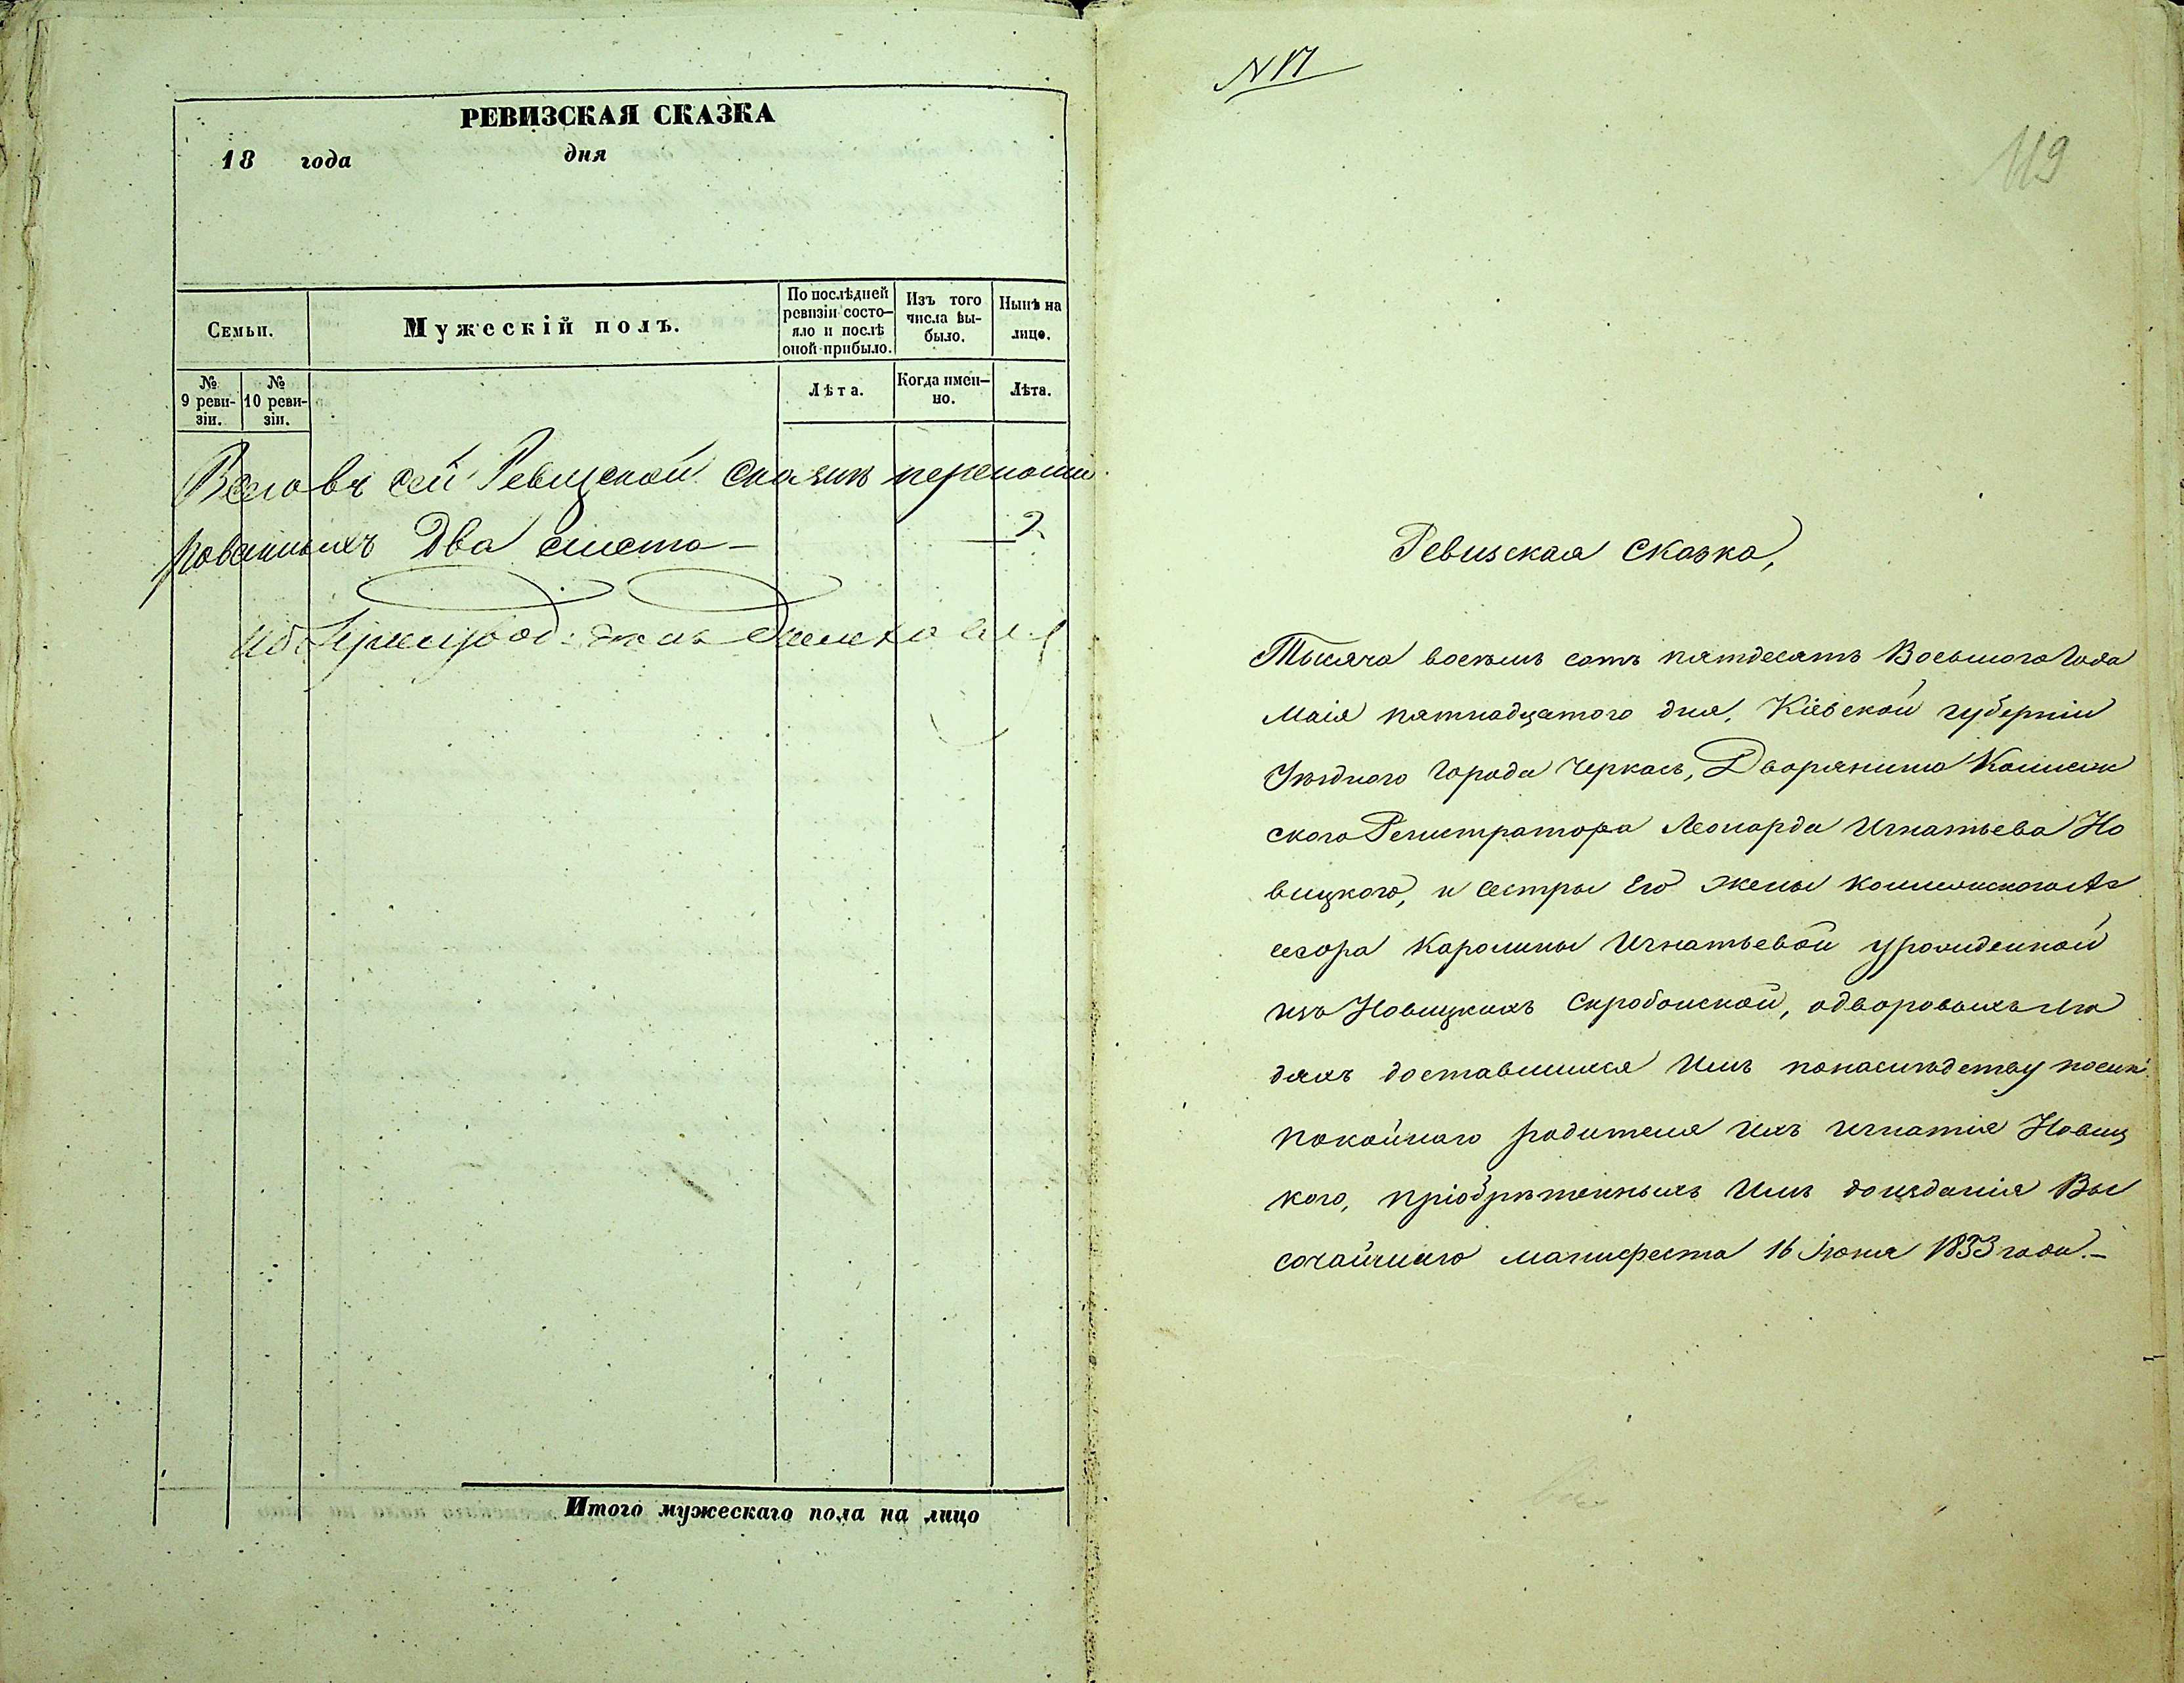 РЕВИЗСКАЯ СКАЗКА
18 года дня
Семьи.
Мужескій полъ.
По послѣдней ревизіи состо-яло и послѣ оной прибыло.
Изъ того числа вы-было.
Нынѣ на лице.
№ 9 реви-зіи.
№ 10 реви-зіи.
Лѣта.
Когда имен-но.
Лѣта.
Всего въ сей Ревизской сказкѣ перенуме
рованныхъ два листа — 2
Итого мужескаго пола на лицо
N 17
119
Ревизская сказка,
Тысяча восемь сотъ пятдесятъ Восьмого Года
Маія пятнадцатого дня, Кіевской губерніи
Уѣзднаго Города Черкасъ, Дворянина Коллеж
ского Регистратора Леонарда Игнатьева Но
вицкого, и сестры Его жены коллежского Ас
сесора Каролины Игнатьевой урожденной
изъ Новицкихъ Скробонской, одворовыхъ лю
дяхъ доставшихся Имъ понаслѣдству послѣ
покойного родителя Ихъ Игнатія Новиц
кого, пріобрѣтенныхъ Имъ доизданія Вы
сочайшаго манифеста 16 Іюня 1833 года.—